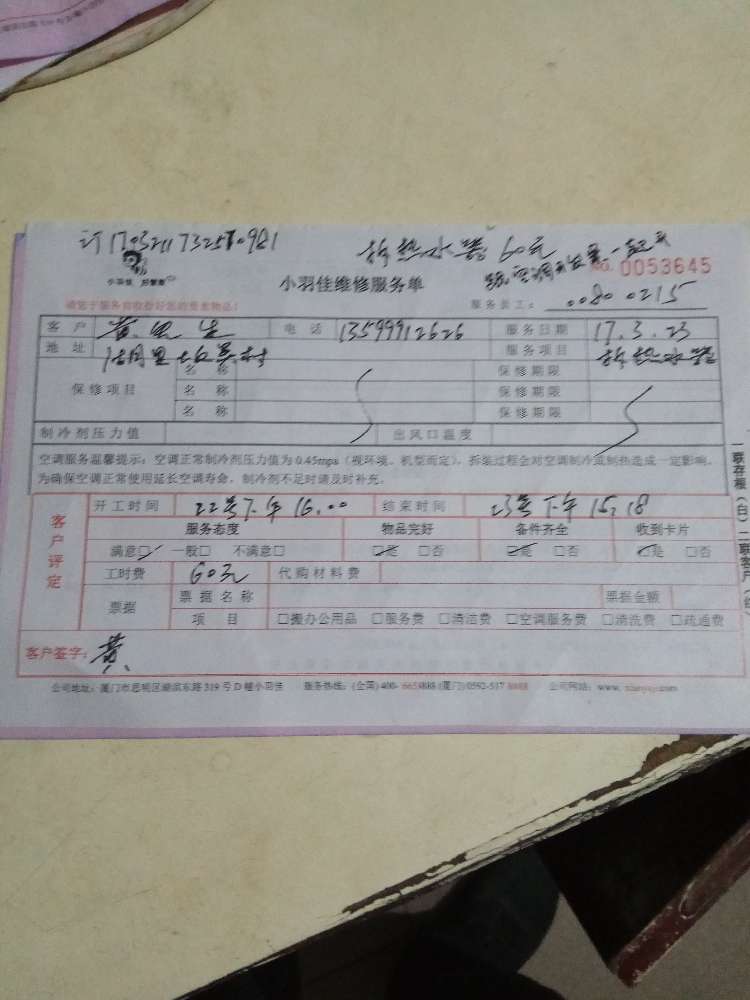 拆热水器60元
小羽佳 好管家
小羽佳维修服务单
No. 0053645
服务员工: 0080 0215
客户 黄先生 电话 13599912626 服务日期 17.3.23
地址 服务项目 拆热水器
保修项目 名称 保修期限
名称 保修期限
名称 保修期限
制冷剂压力值 出风口温度
空调服务温馨提示:空调正常制冷剂压力值为0.45mpa(视环境、机型而定),拆装过程会对空调制冷或制热造成一定影响。
为确保空调正常使用延长空调寿命,制冷剂不足时请及时补充。
客户评定
开工时间 22号下午16.00 结束时间 23号下午15.18
服务态度 物品完好 备件齐全 收到卡片
满意☑ 一般□ 不满意□ ☑是 □否 ☑是 □否 ☑是 □否
工时费 60元 代购材料费
票据 票据名称 票据金额
项目 □搬办公用品 □服务费 □清洁费 □空调服务费 □清洗费 □疏通费
客户签字: 黄
公司地址:厦门市思明区湖滨东路319号D幢小羽佳 服务热线:(全国)400- 8888(厦门)0592-517 8888 公司网站:www. .com
一联存根(白)二联客户